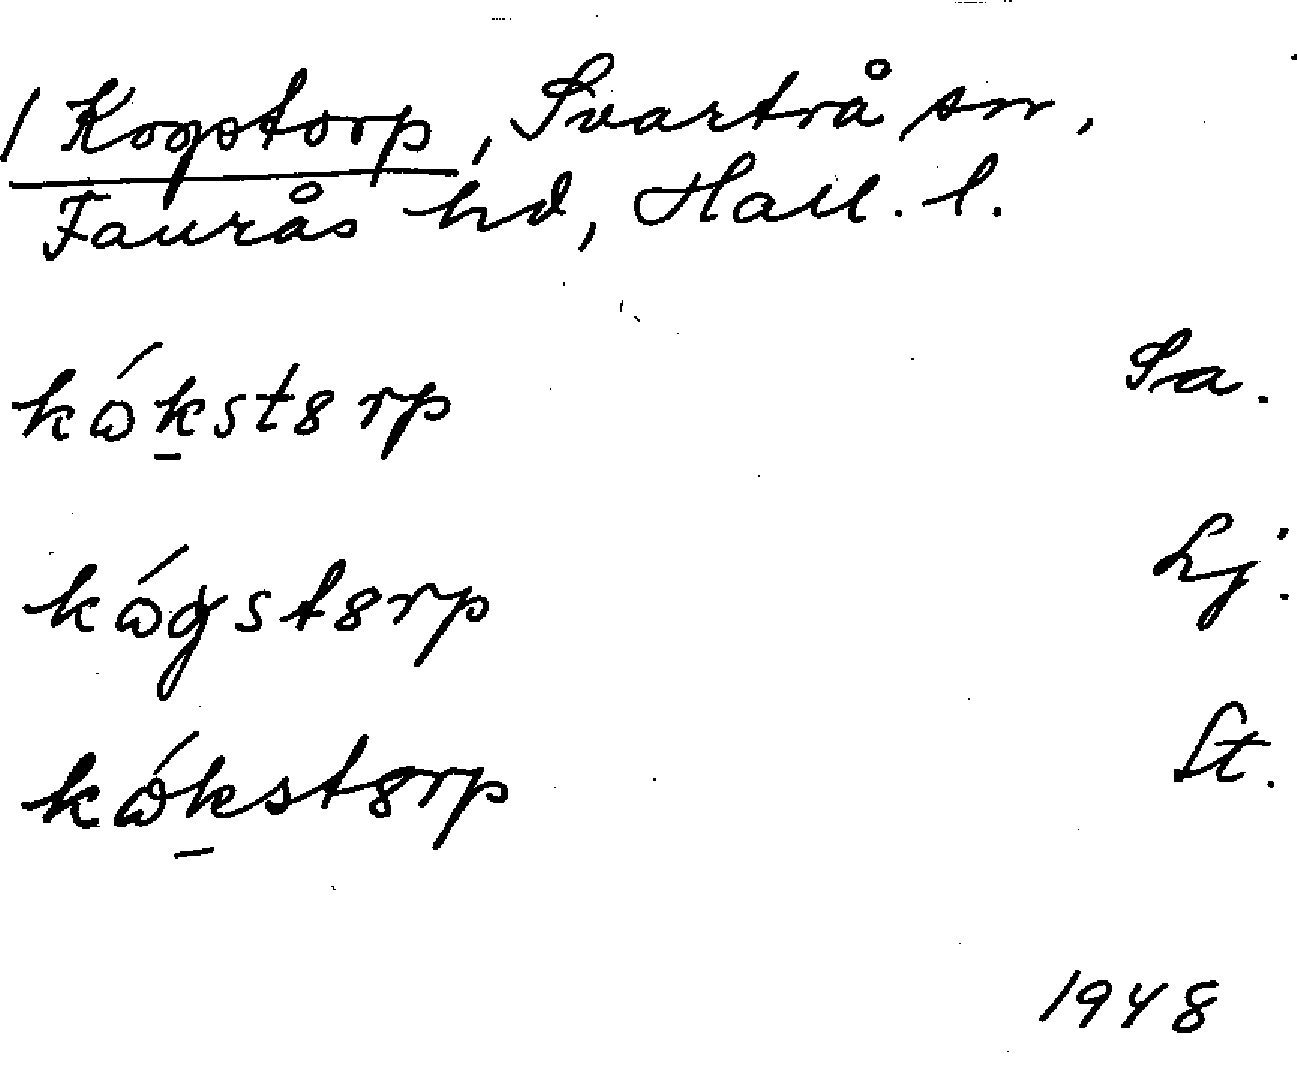 1 Kogstorp, Svartrå sn,
Faurås hd, Hall. l.
kɷ́k̲st8rp Sa.
kɷ́gst8rp Lj.
kɷ́k̲st8rp St.
1948